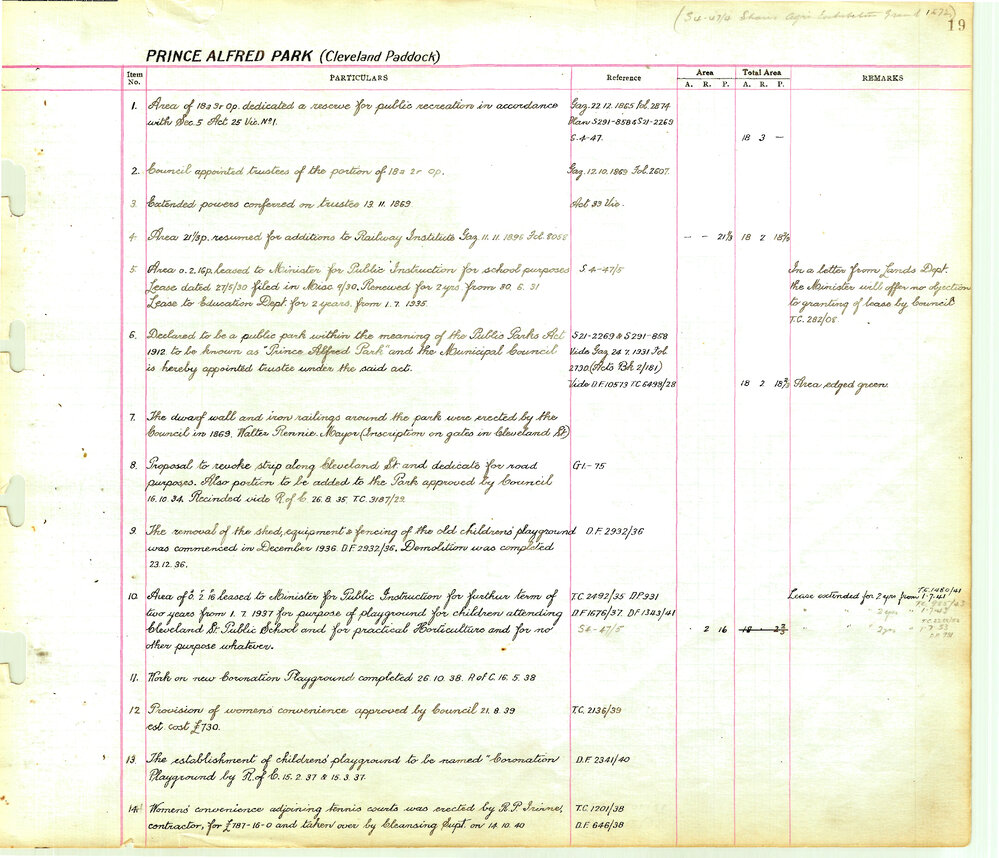 (S4-47/4 Shows Agri Exhibition Ground 1872)
19
PRINCE ALFRED PARK (Cleveland Paddock)
Item No. PARTICULARS Reference Area Total Area REMARKS
A. R. P. A. R. P.
1. Area of 18a 3r 0p. dedicated a reserve for public recreation in accordance Gaz. 22.12.1865 Fol. 2874
with Sec. 5 Act 25 Vic. No1. Plan S291-858 & S21-2269
S.4-47. 18 3 —
2. Council appointed trustees of the portion of 18a 2r 0p. Gaz. 12.10.1869 Fol. 2607.
3. Extended powers conferred on trustes 19.11.1869 Act 33 Vic.
4. Area 21⅓p. resumed for additions to Railway Institute Gaz. 11.11.1896 Fol. 8058 - - 21⅓ 18 2 18⅔
5. Area 0.2.16p. leased to Minister for Public Instruction for school purposes S4-47/5 In a letter from Lands Dept.
Lease dated 27/5/30 filed in Misc 9/30. Renewed for 2 yrs from 30.6.31 the Minister will offer no objection
Lease to Education Dept. for 2 years, from 1.7.1935. to granting of lease by Council
T.C. 282/06.
6. Declared to be a public park within the meaning of the Public Parks Act S21-2269 & S291-858
1912 to be known as "Prince Alfred Park" and the Municipal Council Vide Gaz 24.7.1931 Fol
is hereby appointed trustee under the said act. 2730 (Acts Bk 2/181)
Vide D.F. 10573 T.C 6498/28 18 2 18⅔ Area edged green.
7. The dwarf wall and iron railings around the park were erected by the
Council in 1869. Walter Rennie Mayor (Inscription on gates in Cleveland St.)
8. Proposal to revoke strip along Cleveland St. and dedicate for road G1-75
purposes. Also portion to be added to the Park approved by Council
16.10.34. Recinded vide R. of C. 26.8.35 T.C. 3187/29.
9. The removal of the shed, equipment & fencing of the old childrens' playground D.F. 2932/36
was commenced in December 1936. D.F. 2932/36. Demolition was completed
23.12.36.
10. Area of 0. 2. 16 leased to Minister for Public Instruction for furthur term of T.C. 2492/35 D.P. 931 Lease extended for 2 yrs from 1.7.41 T.C 1480/41
two years from 1.7.1937 for purpose of playground for children attending D.F. 1676/37. D.F. 1343/41 " " 2 yrs " 1.7.43
Cleveland St. Public School and for practical Horticulture and for no S4-47/5 . 2 16 18 - 2⅔ " " 2 yrs " 1.7.53
other purpose whatever.
11. Work on new Coronation Playground completed 26.10.38. R of C. 16.5.38
12. Provision of womens' convenience approved by Council 21.8.39 T.C. 2136/39
est. cost £730.
13. The establishment of childrens' playground to be named "Coronation D.F. 2341/40
Playground by R. of C. 15.2.37 & 15.3.37.
14. Womens' convenience adjoining tennis courts was erected by R.P. Irvine, T.C. 1201/38
contractor, for £787-16-0 and taken over by Cleansing Supt. on 14.10.40 D.F. 646/38